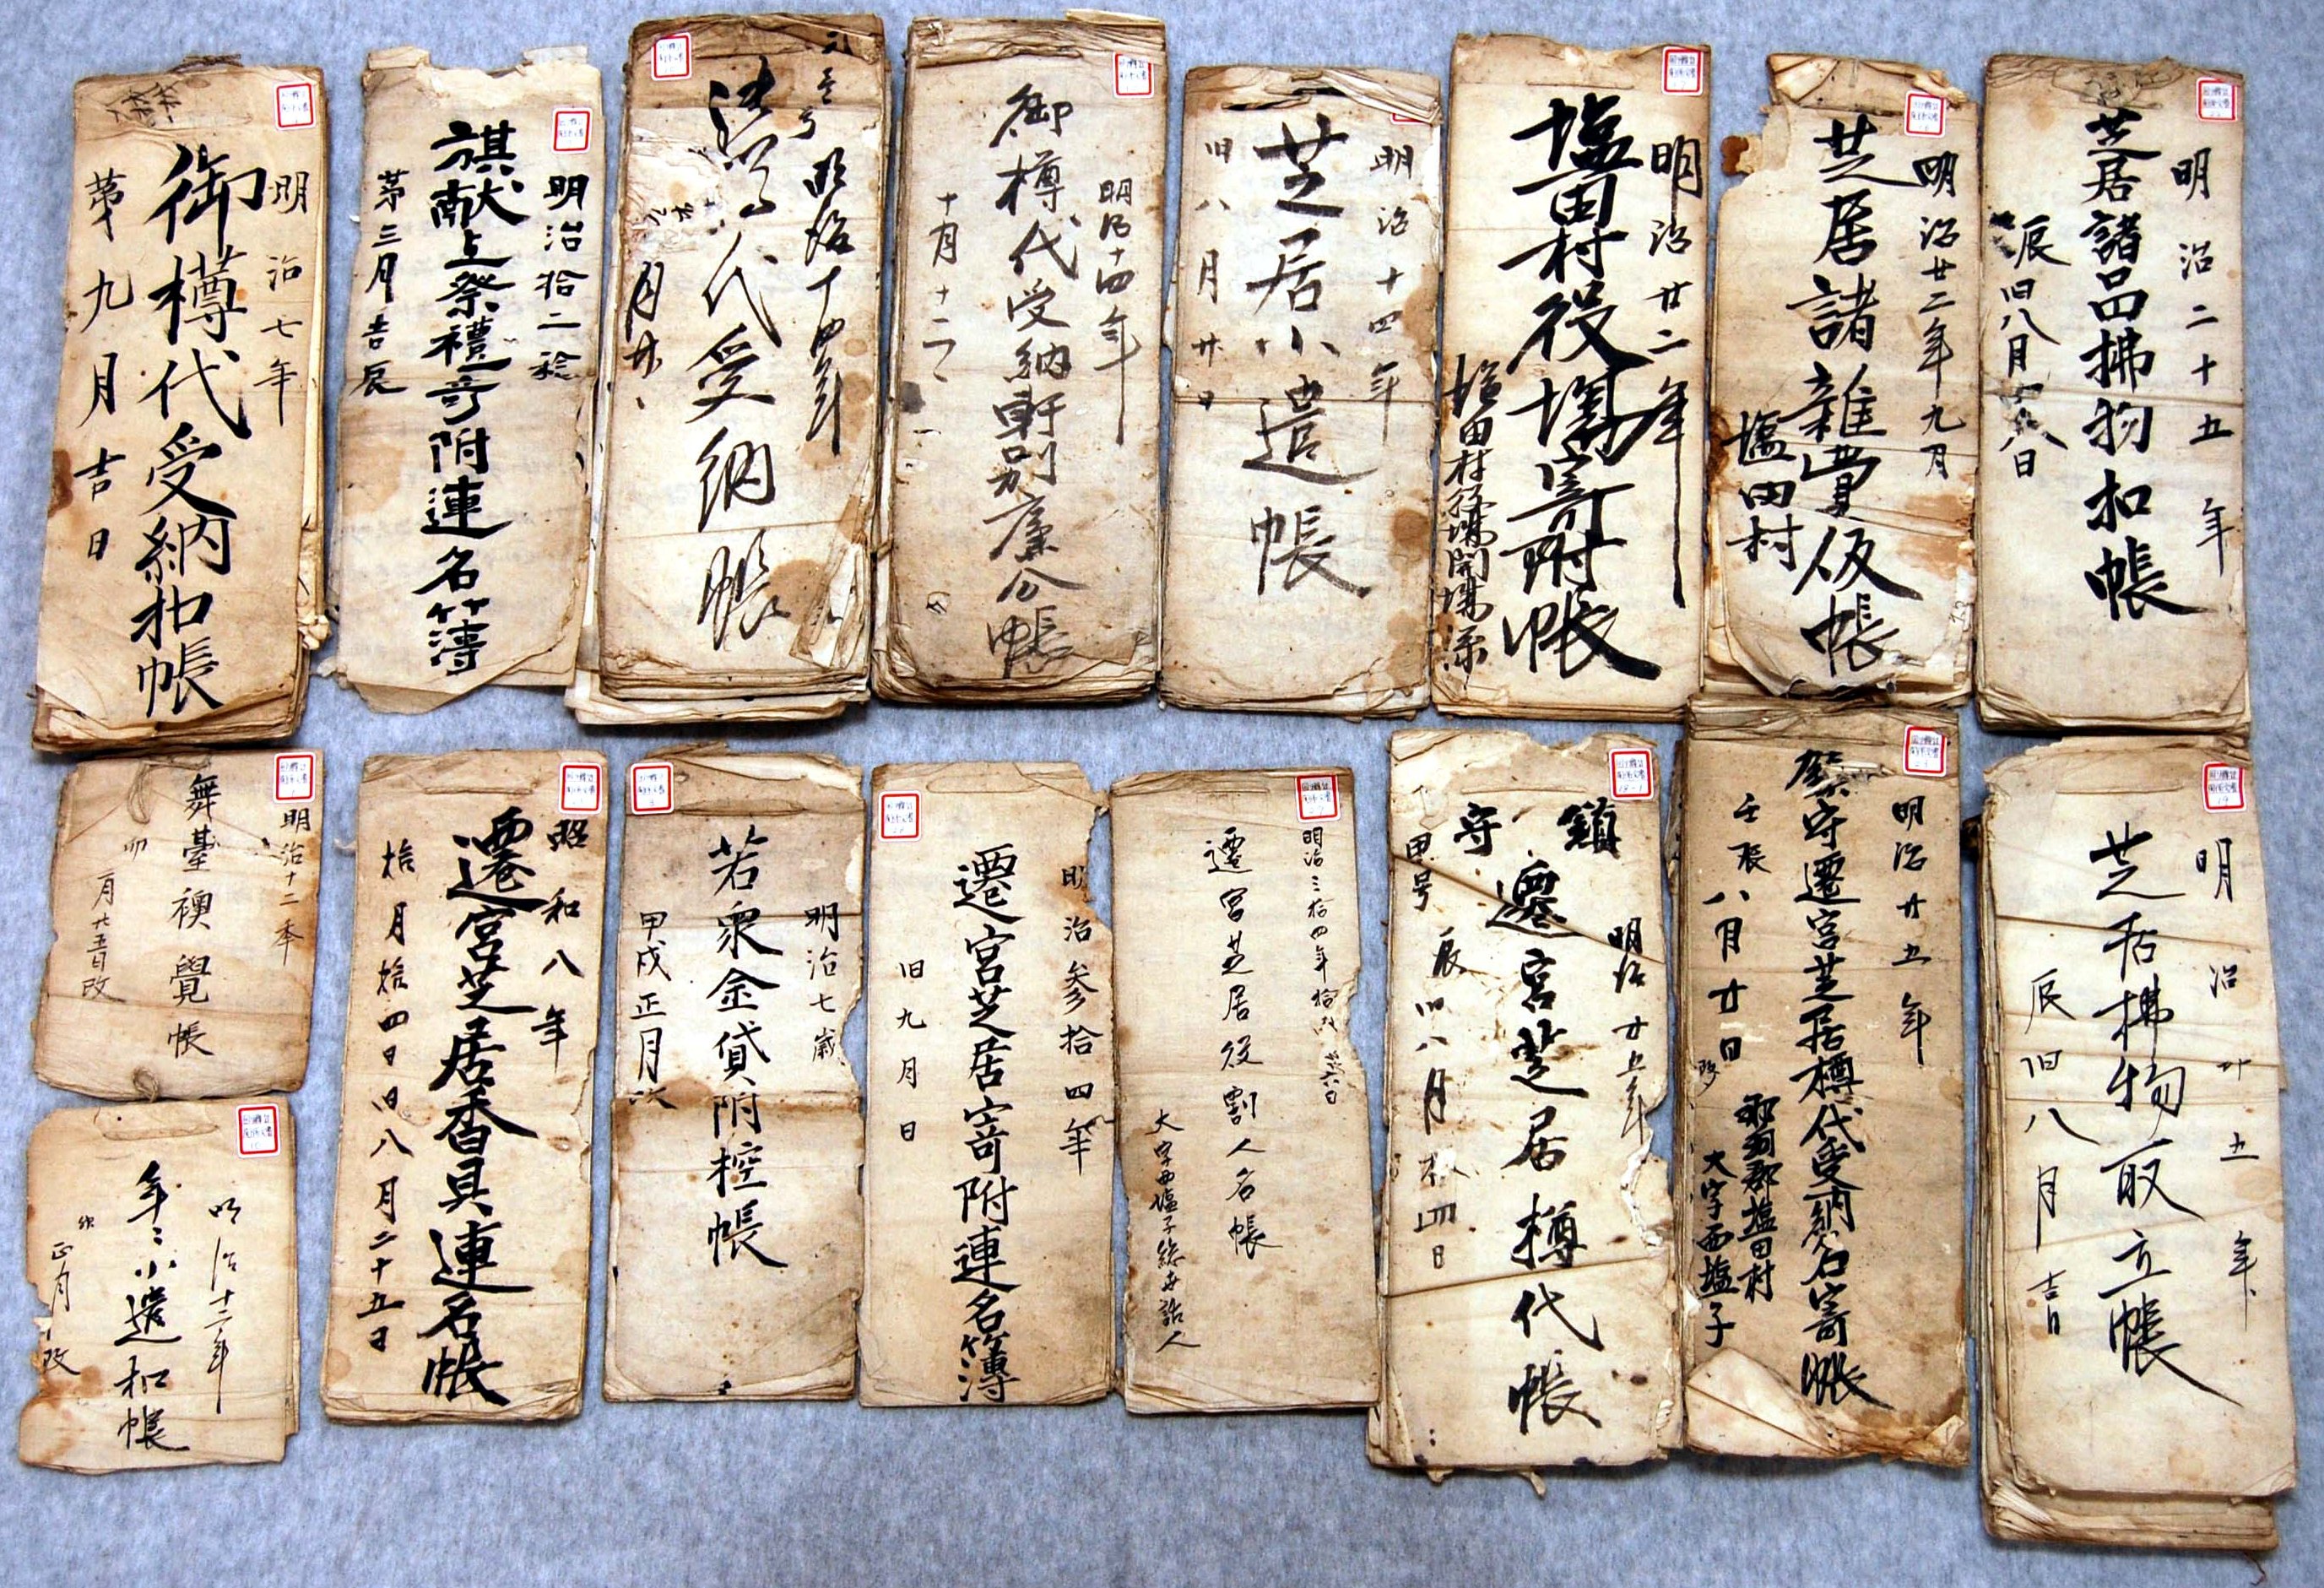 明治七年
御樽代受納扣帳
第九月吉日
明治拾二稔
旗献上祭禮奇附連名簿
第三月吉辰
明治十四年
代受納帳
明治十四年
御樽代受納軒別廉分帳
十月十二
明治十四年
芝居小遣帳
旧八月廿日
明治廿二年
塩田村役場寄附帳
塩田村役場開場係
明治廿二年九月
芝居諸雑費仮帳
塩田村
明治二十五年
芝居諸品拂物扣帳
辰旧八月
明治十二季
舞臺襖覺帳
卯一月廿五日改
昭和八年
遷宮芝居香具連名帳
拾月拾四日旧八月二十五日
明治七歳
若衆金貸附控帳
甲戌正月改
明治参拾四年
遷宮芝居寄附連名簿
旧九月日
明治三拾四年拾
遷宮芝居役割人名帳
大字西塩子総世話人
鎮守
明治廿五年
遷宮芝居樽代帳
甲号
辰旧八月
明治廿五年
鎮守遷宮芝居樽代受納名寄帳
壬辰八月廿日
那珂郡塩田村
大字西塩子
明治廿五年
芝居拂物取立帳
辰旧八月吉日
明治十二年
年々小遣扣帳
正月改